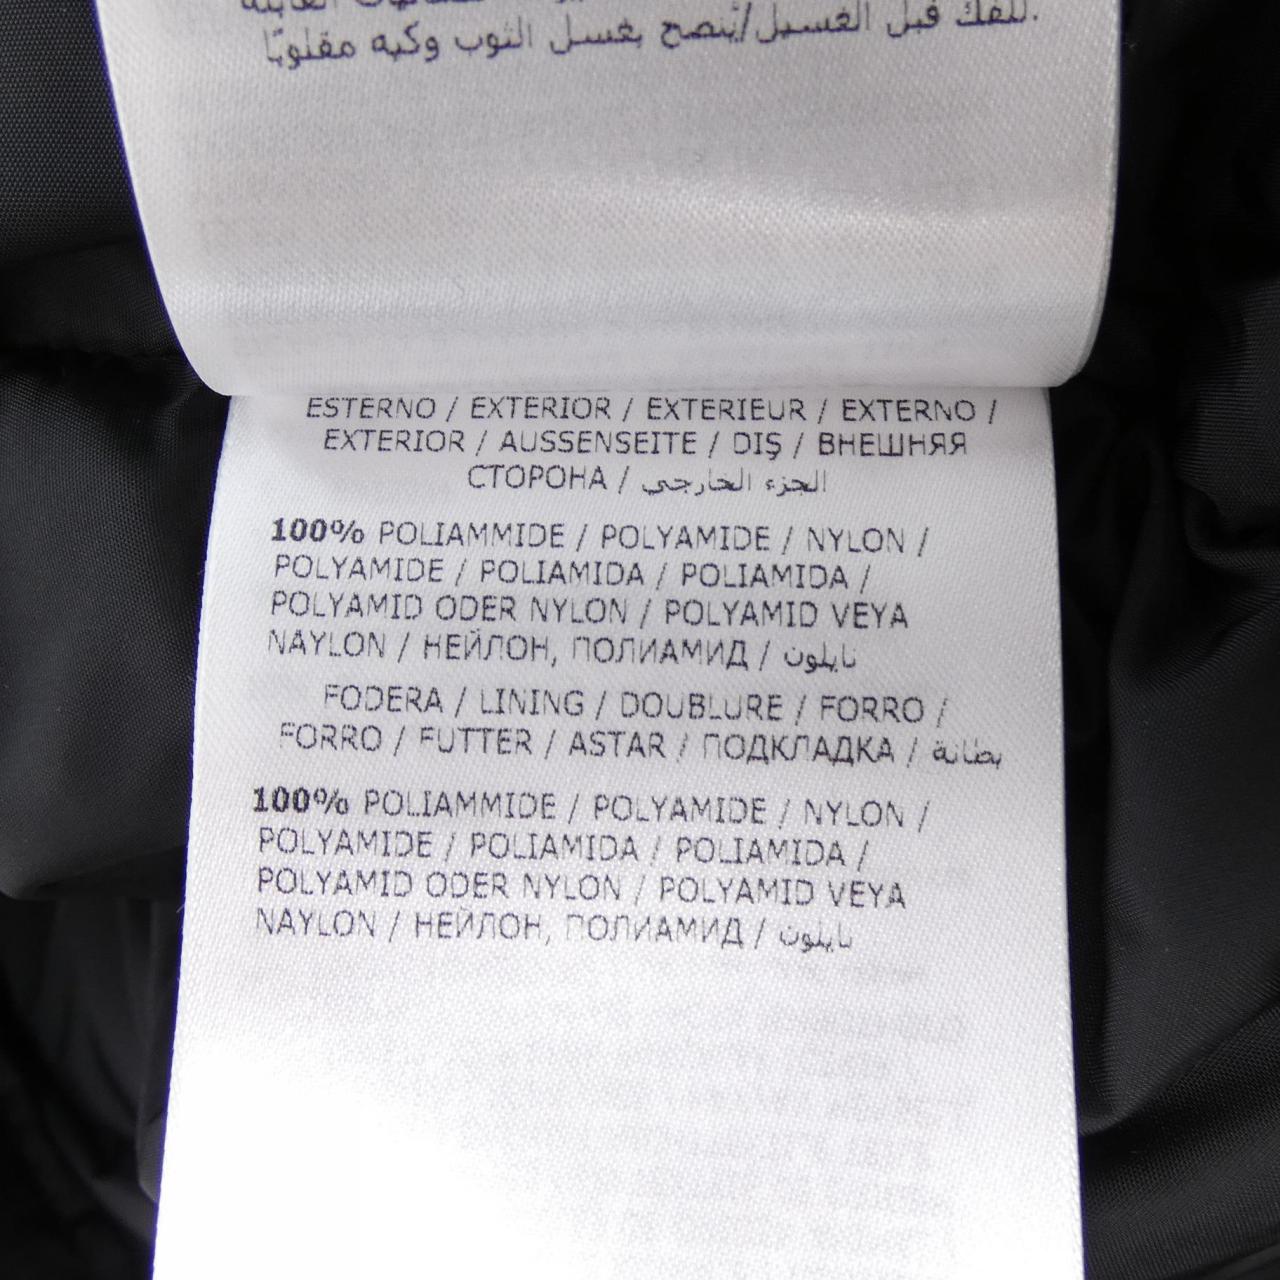 للفك قبل الغسيل/يُنصح بغسل الثوب وكيه مقلوبًا.
ESTERNO / EXTERIOR / EXTERIEUR / EXTERNO /
EXTERIOR / AUSSENSEITE / DIŞ / ВНЕШНЯЯ
СТОРОНА / الجزء الخارجي
100% POLIAMMIDE / POLYAMIDE / NYLON /
POLYAMIDE / POLIAMIDA / POLIAMIDA /
POLYAMID ODER NYLON / POLYAMID VEYA
NAYLON / НЕЙЛОН, ПОЛИАМИД / نايلون
FODERA / LINING / DOUBLURE / FORRO /
FORRO / FUTTER / ASTAR / ПОДКЛАДКА / بطانة
100% POLIAMMIDE / POLYAMIDE / NYLON /
POLYAMIDE / POLIAMIDA / POLIAMIDA /
POLYAMID ODER NYLON / POLYAMID VEYA
NAYLON / НЕЙЛОН, ПОЛИАМИД / نايلون